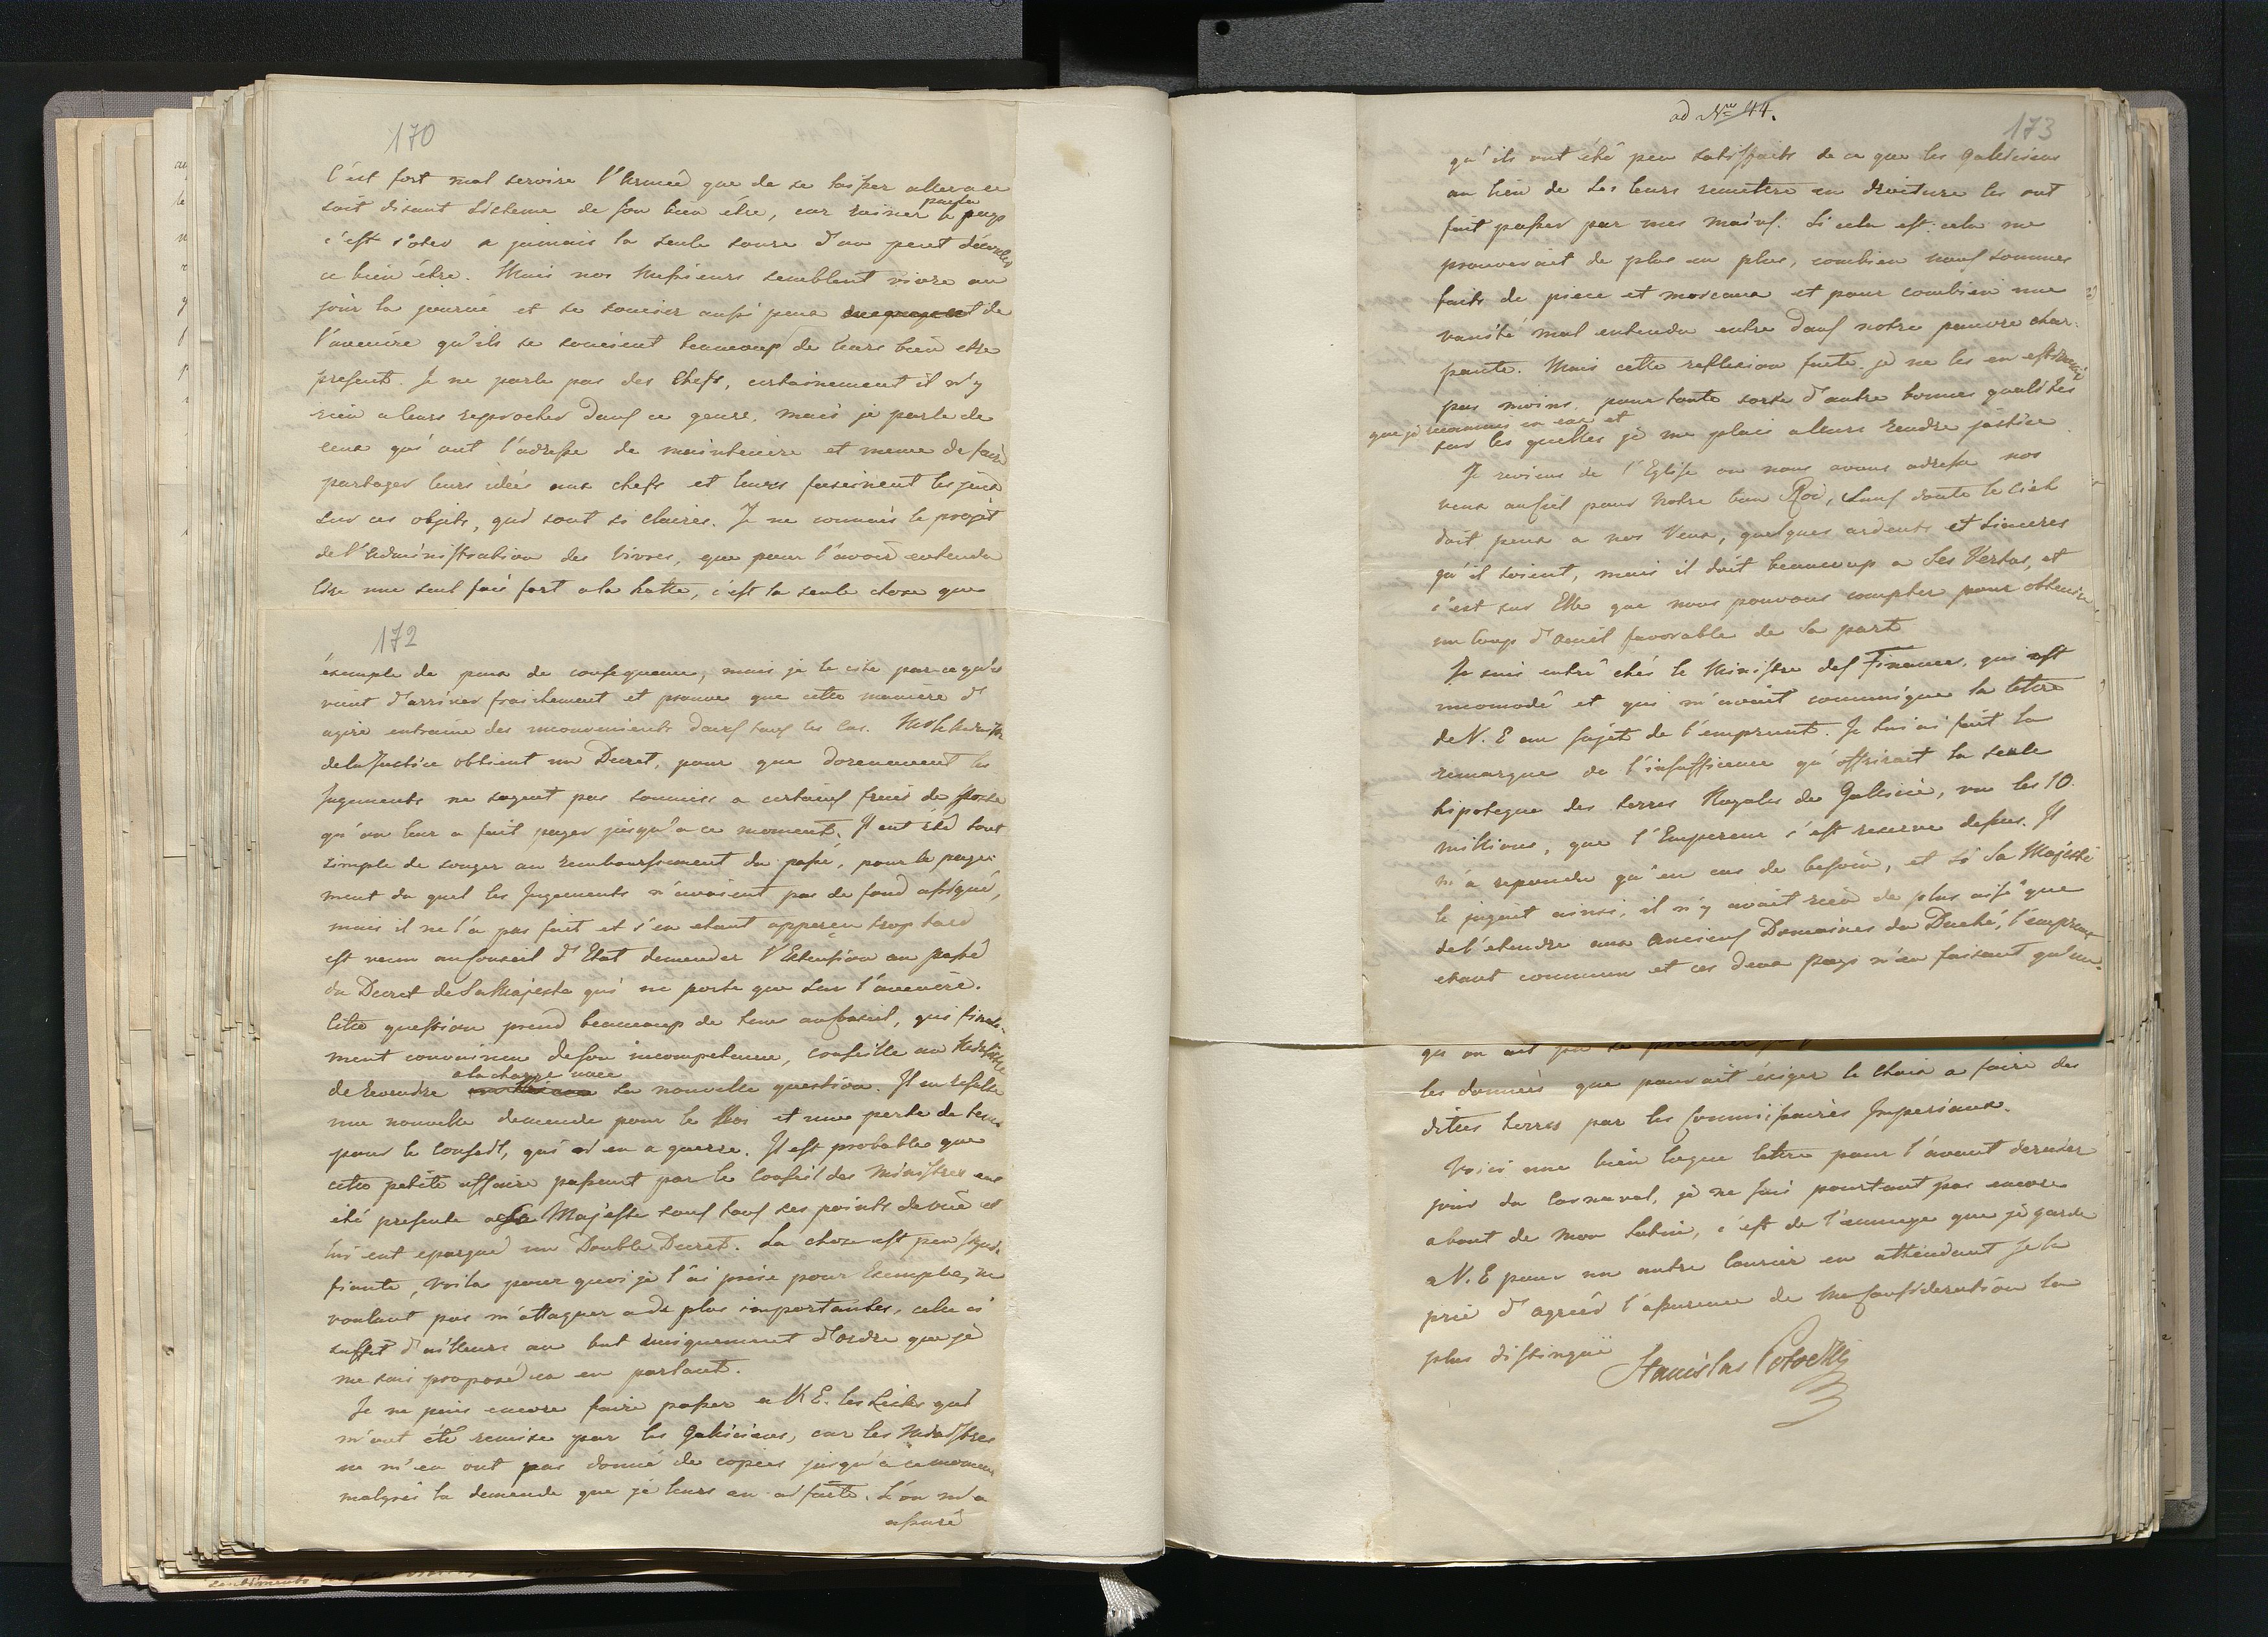 170
C'est fort mal servire l'Armeé que de se laisser
soit disant sisteme de son bien être, car ruiner le pays
c'est s'oter a jamais la seule source d'ou peut
ce bien être. Mais nos Messieurs semblent vivre au
jour la journé et se soucier aussi peux de
l'avenire qu'ils se soucient beaucoup de leurs bien etre
present. Je ne parle pas des Chefs, certainement il n'y
rien a leurs reprocher dans ce genre, mais je parle de
ceux qui ont l'adresse de maintenire et meme de faire
partager leurs idées aux chefs et leurs fascinent les jeux
sur ces objets, qui sont si claires. Je ne connais le projet
de l'Administration des Vivres, que pour l'avoir entendu
lire une seul fois fort a la hatte, c'est la seule chose que
172
éxemple de peux de consequence, mais je le cite parce qu'il
vient d'arriver fraichement et prouve que cette maniere d'
agire entraine des inconvenients dans tous les cas.
de la Justice obtient un Decret, pour que dorenavent les
Jugements ne soyent pas soumises a certains frais de Poste
qu'on leur a fait payer jusqu'a ce moment. Il eut été tout
simple de songer au remboursement du passé, pour le paye-
ment du quel les Jugements n'avaient pas de fond assigné,
mais il ne l'a pas fait et s'en etant apperçu trop tard
est venu au Conseil d'Etat demander l'Extension au passé
du Decret de Sa Majesté qui ne porte que sur l'avenire.
Cette question prend beaucoup de tems au Conseil, qui finale-
ment convaincu de son incompetence, conseille au Ministre
de revendre sa nouvelle question. Il en resulte
une nouvelle demande pour le Roi et une perte de tems
pour le Conseil, qui n'en a guerre. Il est probable que
cette petite affaire passant par le Conseil des Ministres eut
été presente a Sa Majeste sous tous ses points de vue et
lui eut epargné un Double Decret. La chose est peu signi-
fiante, voila pour quoi je l'ai prise pour Exemple, ne
voulant pas m'attaquer a de plus importantes, celle ci
suffit d'ailleurs au but uniquement d'ordre que je
me suis proposé en en parlant.
Je ne puis encore faire passer a V.E. les Listes qui
m'ont été remise par les Galiciens, car les Ministres
ne m'en ont pas donné de copies jusqu'à ce moment
malgrés la demande que je leurs en ai faite. L'on m'a
assuré
ad Nro 44.
173
qu'ils ont été peu satisfaits de ce que les Galiciens
au lieu de les leurs remettre en droiture les ont
fait passer par mes mains. Si cela est: cela me
prouverait de plus en plus, combien nous sommes
faits de piece et morceaux et pour combien une
vanité mal entendu entre dans notre pauvre char-
pente. Mais cette reflexion faite je ne les en estime
pas moins, pour toute sorte d'autre bonnes qualités
que je reconnais en eux et
sur les quelles je me plais a leurs rendre justice
Je reviens de l'Eglise ou nous avons adresse nos
veux au Ciel pour notre bon Roi, Sans doute le Ciel
doit peux a nos Veux, quelques ardents et sinceres
qu'il soient, mais il doit beaucoup a Ses Vertus, et
c'est sur Elle que nous pouvons compter pour obtenire
un Coup d'oeuil favorable de Sa part
Je suis entré chés le Ministre des Finances, qui est
incomodé et qui m'avait communiqué la lettre
de V. E au sujet de l'emprunt. Je lui ai fait la
remarque de l'insuffisence qu'offrirait la seule
hipoteque des terres Royales de Gallicie, vu les 10.
millions, que l'Empereur s'est reservé dessus. Il
m'a repondu qu'en cas de besoin, et si Sa Majesté
le jugait ainsi, il n'y avait rien de plus aisé que
de l'etendre aux Anciens Domaines du Duché, l'emprunt
etant commun et ces deux pays n'en faisant qu'un.
les données que pouvait éxiger le Choix a faire des
dittes terres par les Commissaires Imperiaux.
Voici une bien longue lettre pour l'avant dernier
jour du Carnaval, je ne suis pourtant pas encore
a bout de mon Latin, c'est de l'ennuye que je garde
a V. E pour un autre Courier en attendant je la
prie d'agréér l'assurence de ma Consideration la
plus distingué Stanislas Potocki